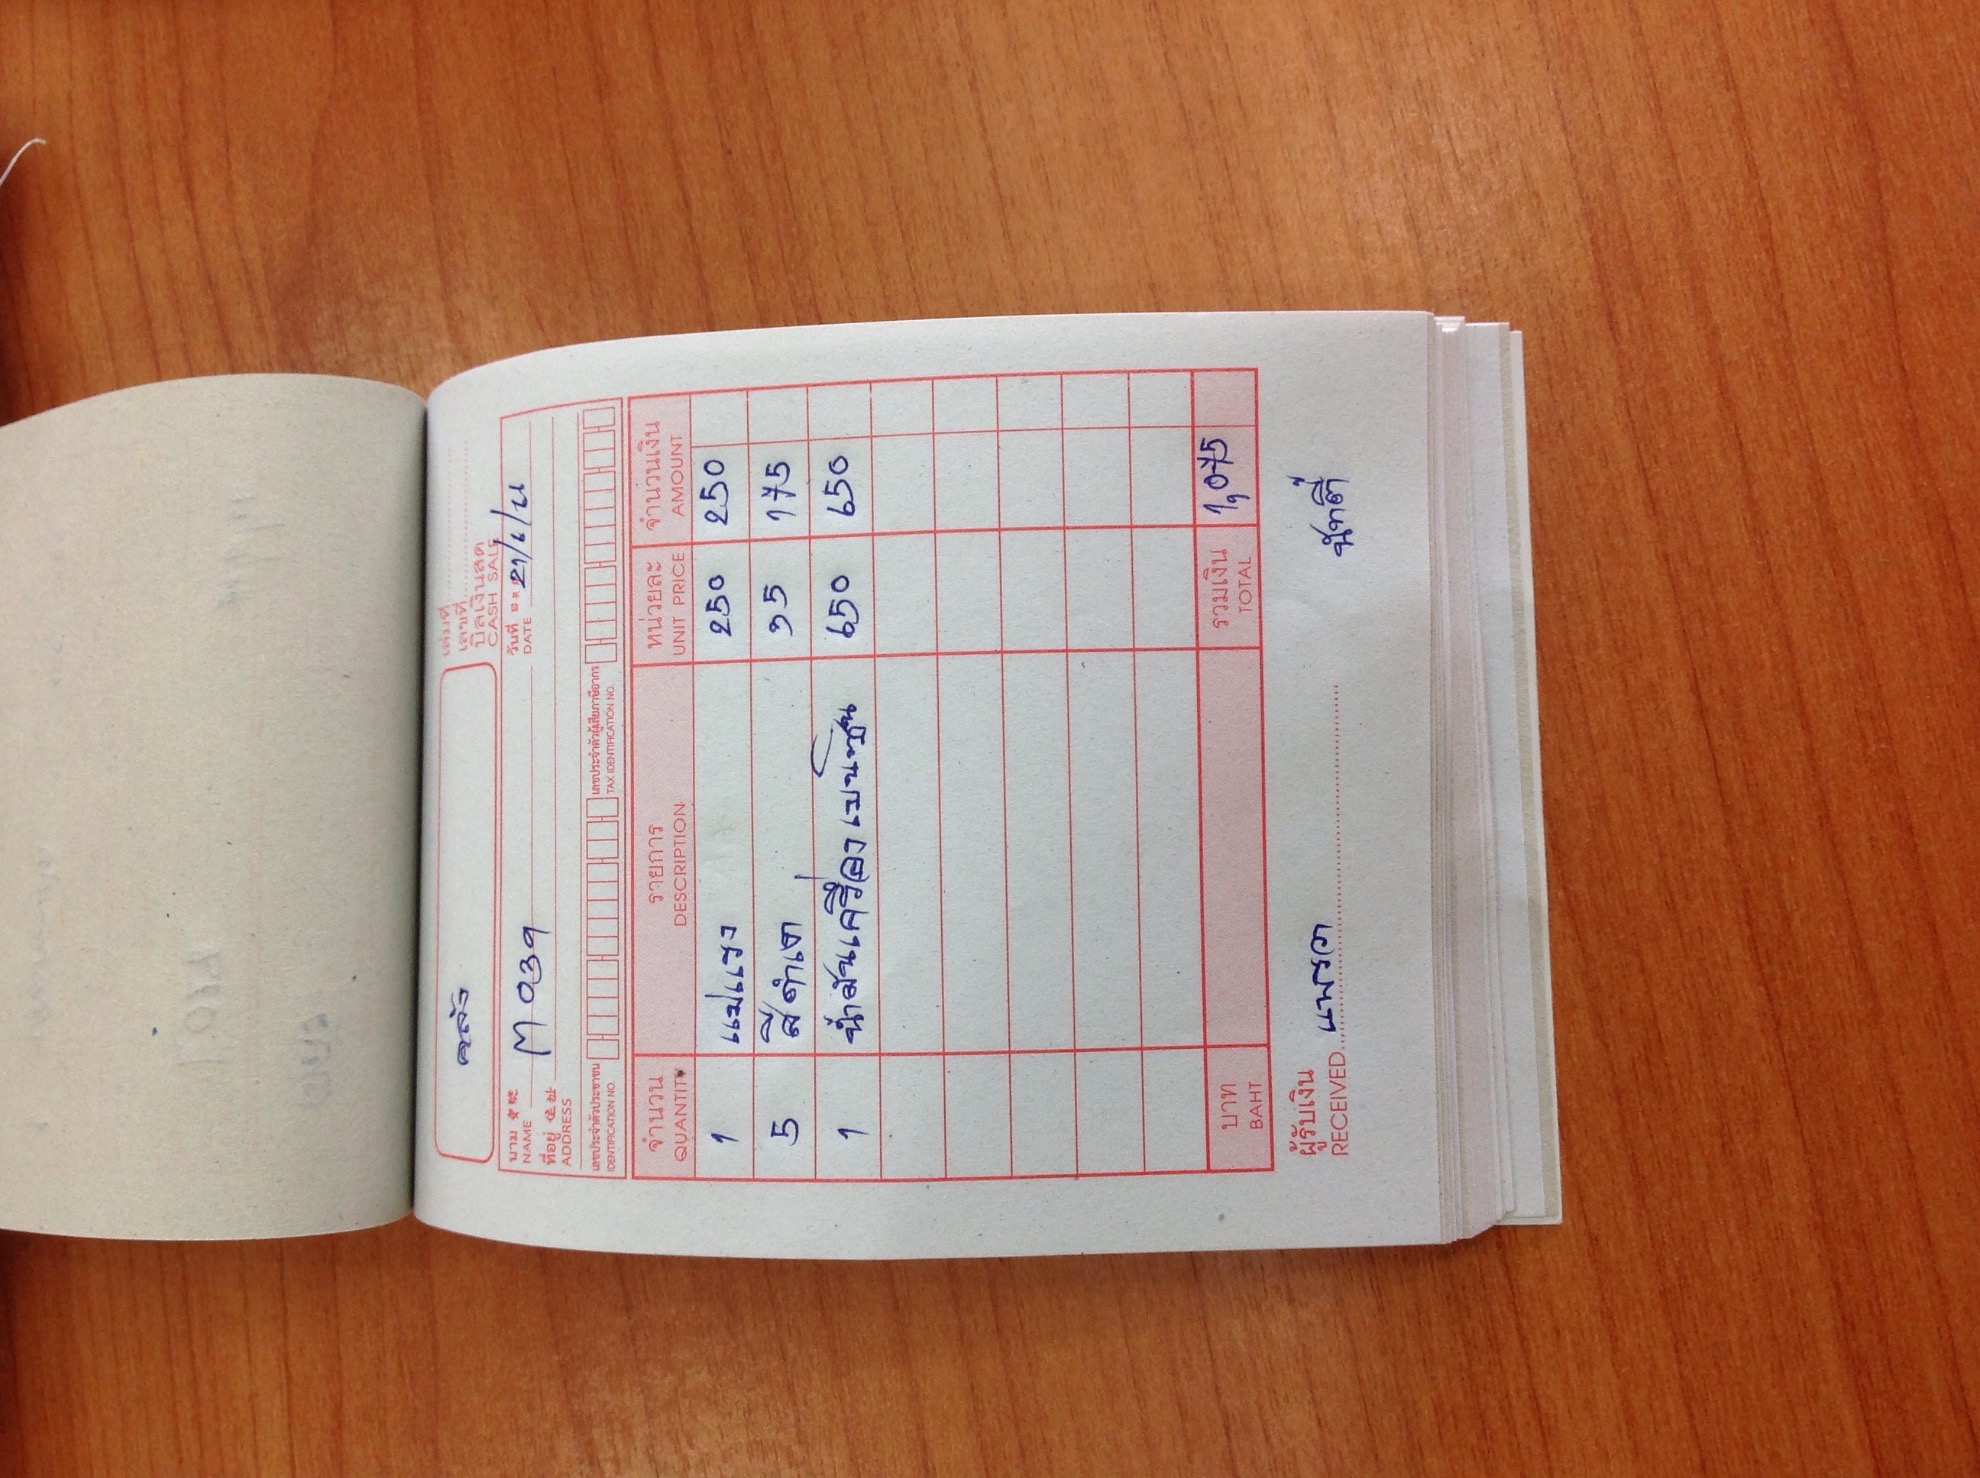 เล่มที่
เลขที่
บิลเงินสด
CASH SALE
นาม
NAME M 039
วันที่
DATE
ที่อยู่
ADDRESS
เลขประจำตัวประชาชน
IDENTIFICATION NO.
เลขประจำตัวผู้เสียภาษีอากร
TAX IDENTIFICATION NO.
จำนวน รายการ หน่วยละ จำนวนเงิน
QUANTITY DESCRIPTION UNIT PRICE AMOUNT
1 แม่แรง 250 250
5 สีดำเงา 35 175
1 น้ำมันเครื่อง เบนซิน 650 650
บาท รวมเงิน 1,075
BAHT TOTAL
ผู้รับเงิน
RECEIVED แพรวา